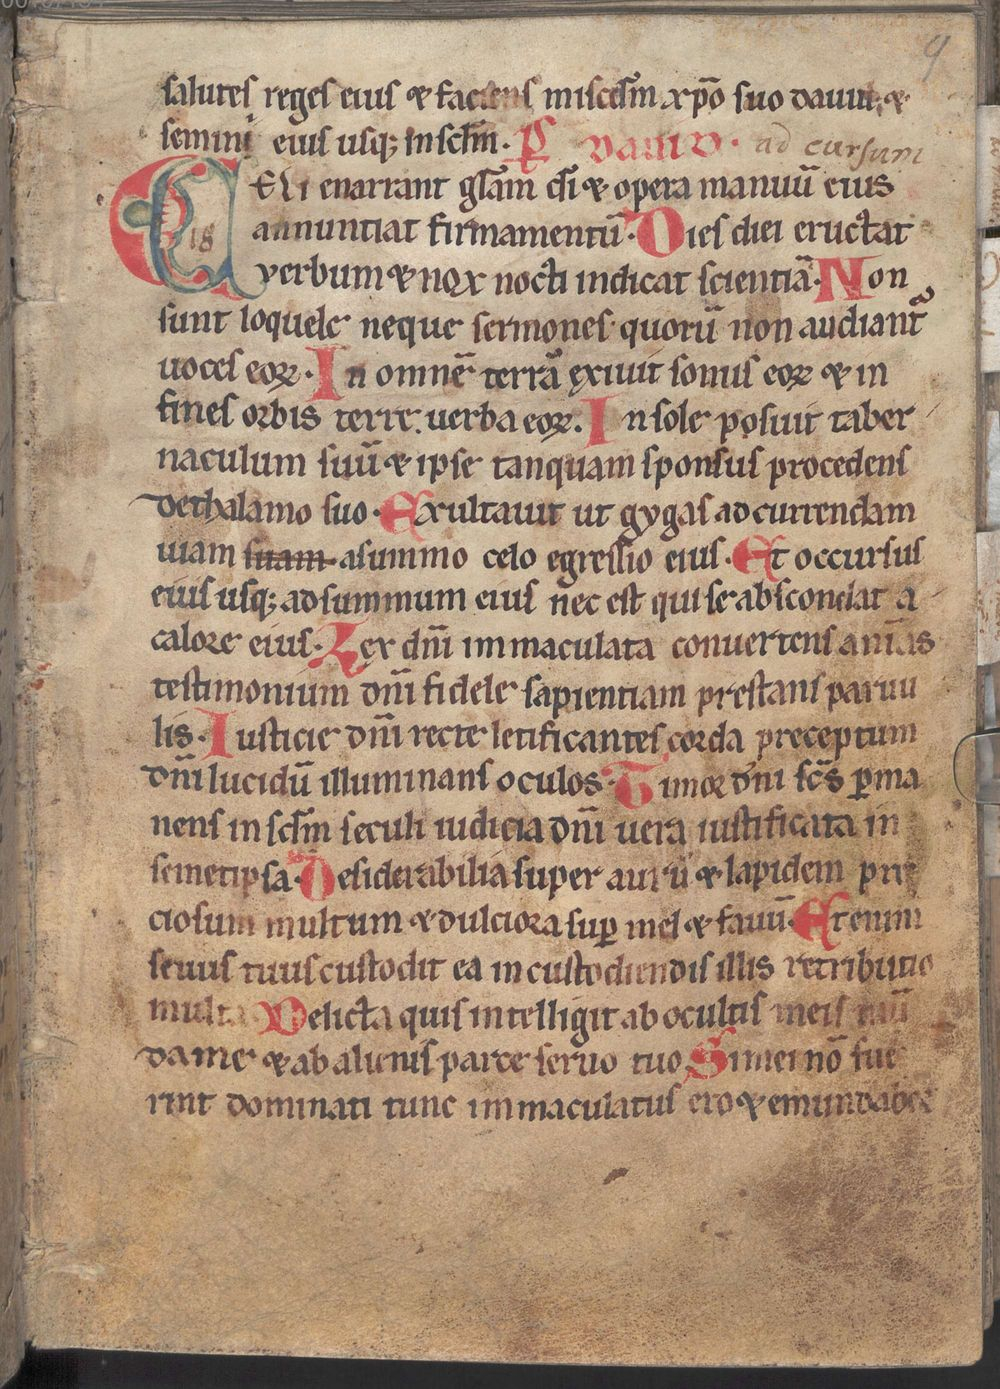 9
salutes reges eius ⁊ faciens miscd̄m xp̄o suo dauid ⁊
semini eius usq; in sclm̄. p̄s dauid. ad cursum
CELI enarrant glā̄m di ⁊ opera manuū eius
18
annuntiat firmamentū. Dies diei eructat
verbum ⁊ nox nocti indicat scientiā. Non
sunt loquele neque sermones quorū non audiantr̄
uoces eoꝝ. In omnē terrā exiuit sonus eoꝝ ⁊ in
fines orbis terre uerba eoꝝ. In sole posuit taber
naculum suū ⁊ ipse tanquam sponsus procedens
de thalamo suo. Exultauit ut gygas ad currendam
uiam suam asummo celo egressio eius. Et occursus
eius usq; ad summum eius nec est qui se abscondat a
calore eius. Lex dn̄i immaculata conuertens anīas
testimonium dn̄i fidele sapientiam prestans paruu
lis. Iusticie dn̄i recte letificantes corda preceptum
dn̄i lucidū illuminans oculos. Timor dn̄i sc̄s ꝑma
nens in sclm̄ seculi iudicia dn̄i uera iustificata in
semetipsa. Desiderabilia super aurū ⁊ lapidem pre
ciosum multum ⁊ dulciora suꝑ mel ⁊ fauū. Etenim
seuus tuus custodit ea in custodiendis illis retributio
multa Delicta quis intelligit ab ocultis meis mū
da me ⁊ ab alienis parce seruo tuo. Si mei nō fue
rint dominati tunc immaculatus ero ⁊ emundabor